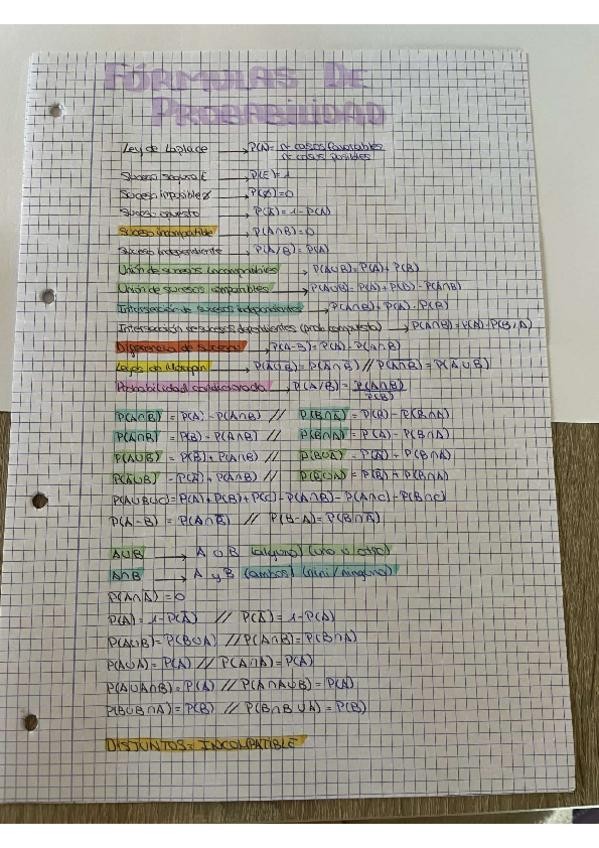 FÓRMULAS DE
PROBABILIDAD
Ley de Laplace → P(A) = nº casos favorables / nº casos posibles
Suceso seguro E → P(E) = 1
Suceso imposible ∅ → P(∅) = 0
Suceso opuesto → P(A̅) = 1 - P(A)
Suceso incompatible → P(A∩B) = 0
Suceso independiente → P(A/B) = P(A)
Unión de sucesos incompatibles → P(A∪B) = P(A) + P(B)
Unión de sucesos compatibles → P(A∪B) = P(A) + P(B) - P(A∩B)
Intersección de sucesos independientes → P(A∩B) = P(A) · P(B)
Intersección de sucesos dependientes (prob. compuesta) → P(A∩B) = P(A) · P(B/A)
Diferencia de sucesos → P(A-B) = P(A) - P(A∩B)
Leyes de Morgan →
Probabilidad condicionada → P(A/B) = P(A∩B) / P(B)
= P(A) - P(A∩B) // = P(B) - P(B∩A)
= P(B) - P(A∩B) // = P(A) - P(B∩A)
P(A∪B∪C) = P(A) + P(B) + P(C) - P(A∩B) - P(A∩C) - P(B∩C)
P(A-B) = P(A∩B̅) // P(B-A) = P(B∩A̅)
A∪B → A o B (alguno) (uno u otro)
A∩B → A y B (ambos) (nini/ninguno)
P(A∩A̅) = 0
P(A) = 1 - P(A̅) // P(A̅) = 1 - P(A)
P(A∪B) = P(B∪A) // P(A∩B) = P(B∩A)
P(A∪A) = P(A) // P(A∩A) = P(A)
P(A∪A∩B) = P(A) // P(A∩A∪B) = P(A)
P(B∪B∩A) = P(B) // P(B∩B∪A) = P(B)
DISJUNTOS = INCOMPATIBLE